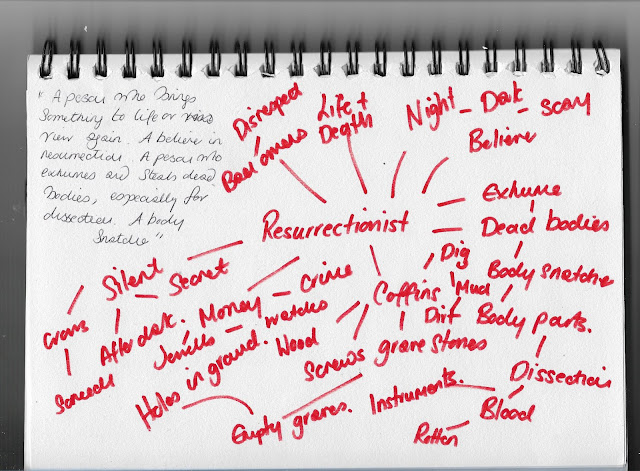 "A person who brings
Something to life or
view again. A believer in
resurrection. A person who
exhumes and Steals dead
bodies, especially for
dissection. A body
Snatcher"
Disrespect
Bad omens
Life +
Death
Night - Dark - Scary
Believer
Resurrectionist
Exhume
Dead bodies
Body snatcher
Body parts.
Dissection
Blood
Rotten
Instruments.
Dig
Mud
Dirt
Coffins
Wood
Screws
grave stones
Empty graves.
Holes in ground.
Crime
Money
Jewells
watches
Silent
Secret
After dark.
Crows
Screech